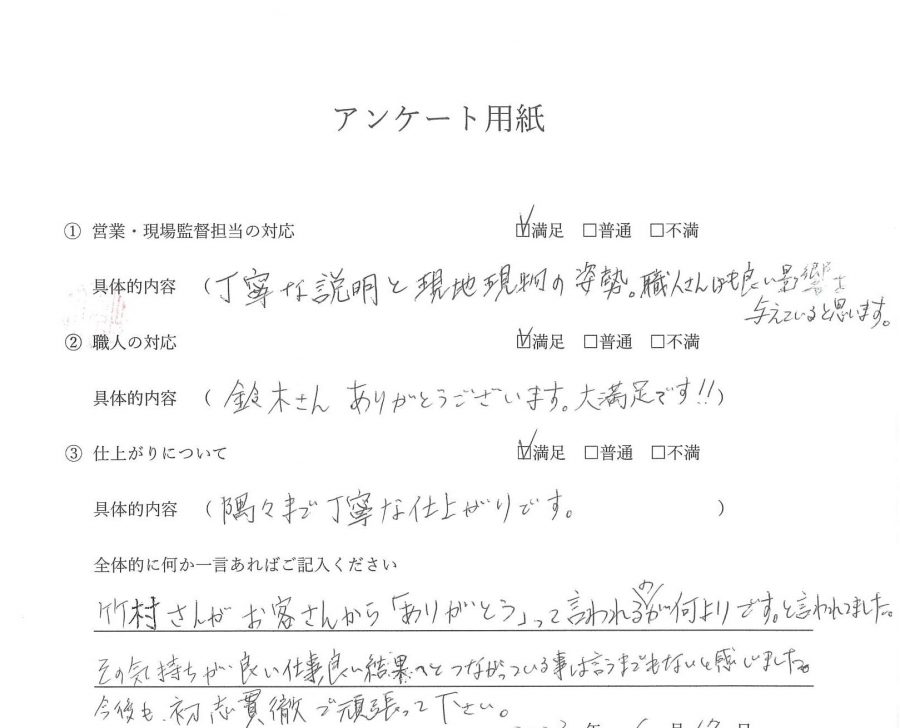 アンケート用紙
① 営業・現場監督担当の対応 ☑満足 □普通 □不満
具体的内容 (丁寧な説明と現地現物の姿勢。職人さんにも良い影響を
与えていると思います。
② 職人の対応 ☑満足 □普通 □不満
具体的内容 ( 鈴木さん ありがとうございます。大満足です!!)
③ 仕上がりについて ☑満足 □普通 □不満
具体的内容 ( 隅々まで丁寧な仕上がりです。 )
全体的に何か一言あればご記入ください
竹村さんがお客さんから「ありがとう」って言われるのが何よりです。と言われてました。
その気持ちが良い仕事良い結果へとつながっている事は言うまでもないと感じました。
今後も、初志貫徹で頑張って下さい。